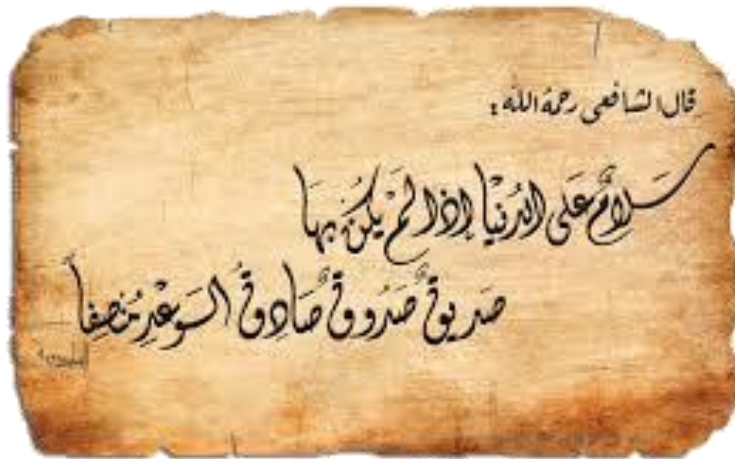 قال الشافعى رحمه الله :
سَلَامٌ عَلَى الدُنْيَا إِذا لَمْ يَكُنْ بِهَا
صَديقٌ صَدُوقٌ صَادِقُ الوَعْدِ مُنصِفاً